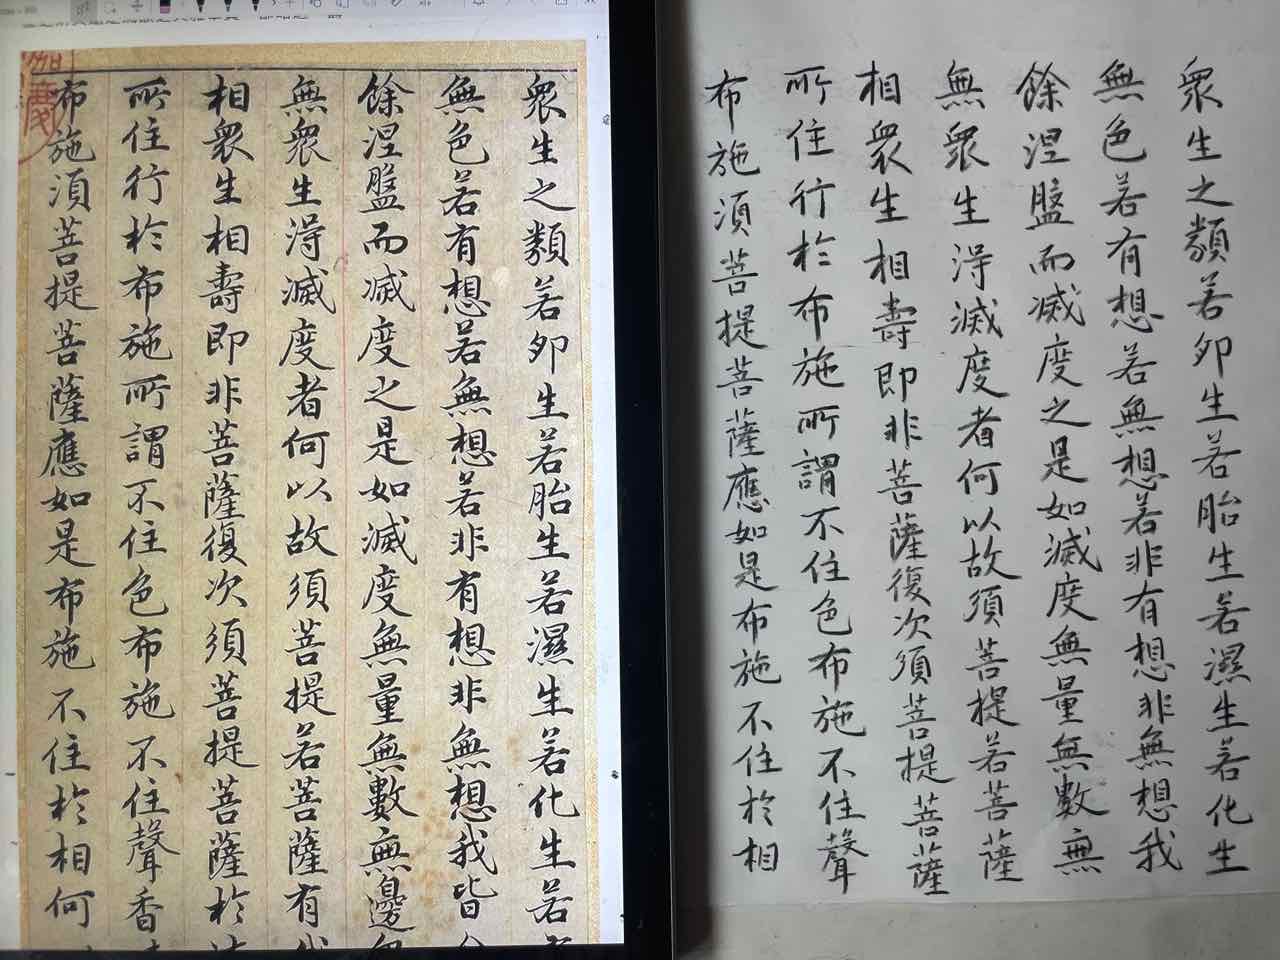 衆生之類若卵生若胎生若濕生若化生若
無色若有想若無想若非有想非無想我皆
餘涅盤而滅度之是如滅度無量無數無邊
無衆生得滅度者何以故須菩提若菩薩有
相衆生相壽即非菩薩復次須菩提菩薩於
所住行於布施所謂不住色布施不住聲香
布施須菩提菩薩應如是布施不住於相何
衆生之類若卵生若胎生若濕生若化生
無色若有想若無想若非有想非無想我
餘涅盤而滅度之是如滅度無量無數無
無衆生得滅度者何以故須菩提若菩薩
相衆生相壽即非菩薩復次須菩提菩薩
所住行於布施所謂不住色布施不住聲
布施須菩提菩薩應如是布施不住於相